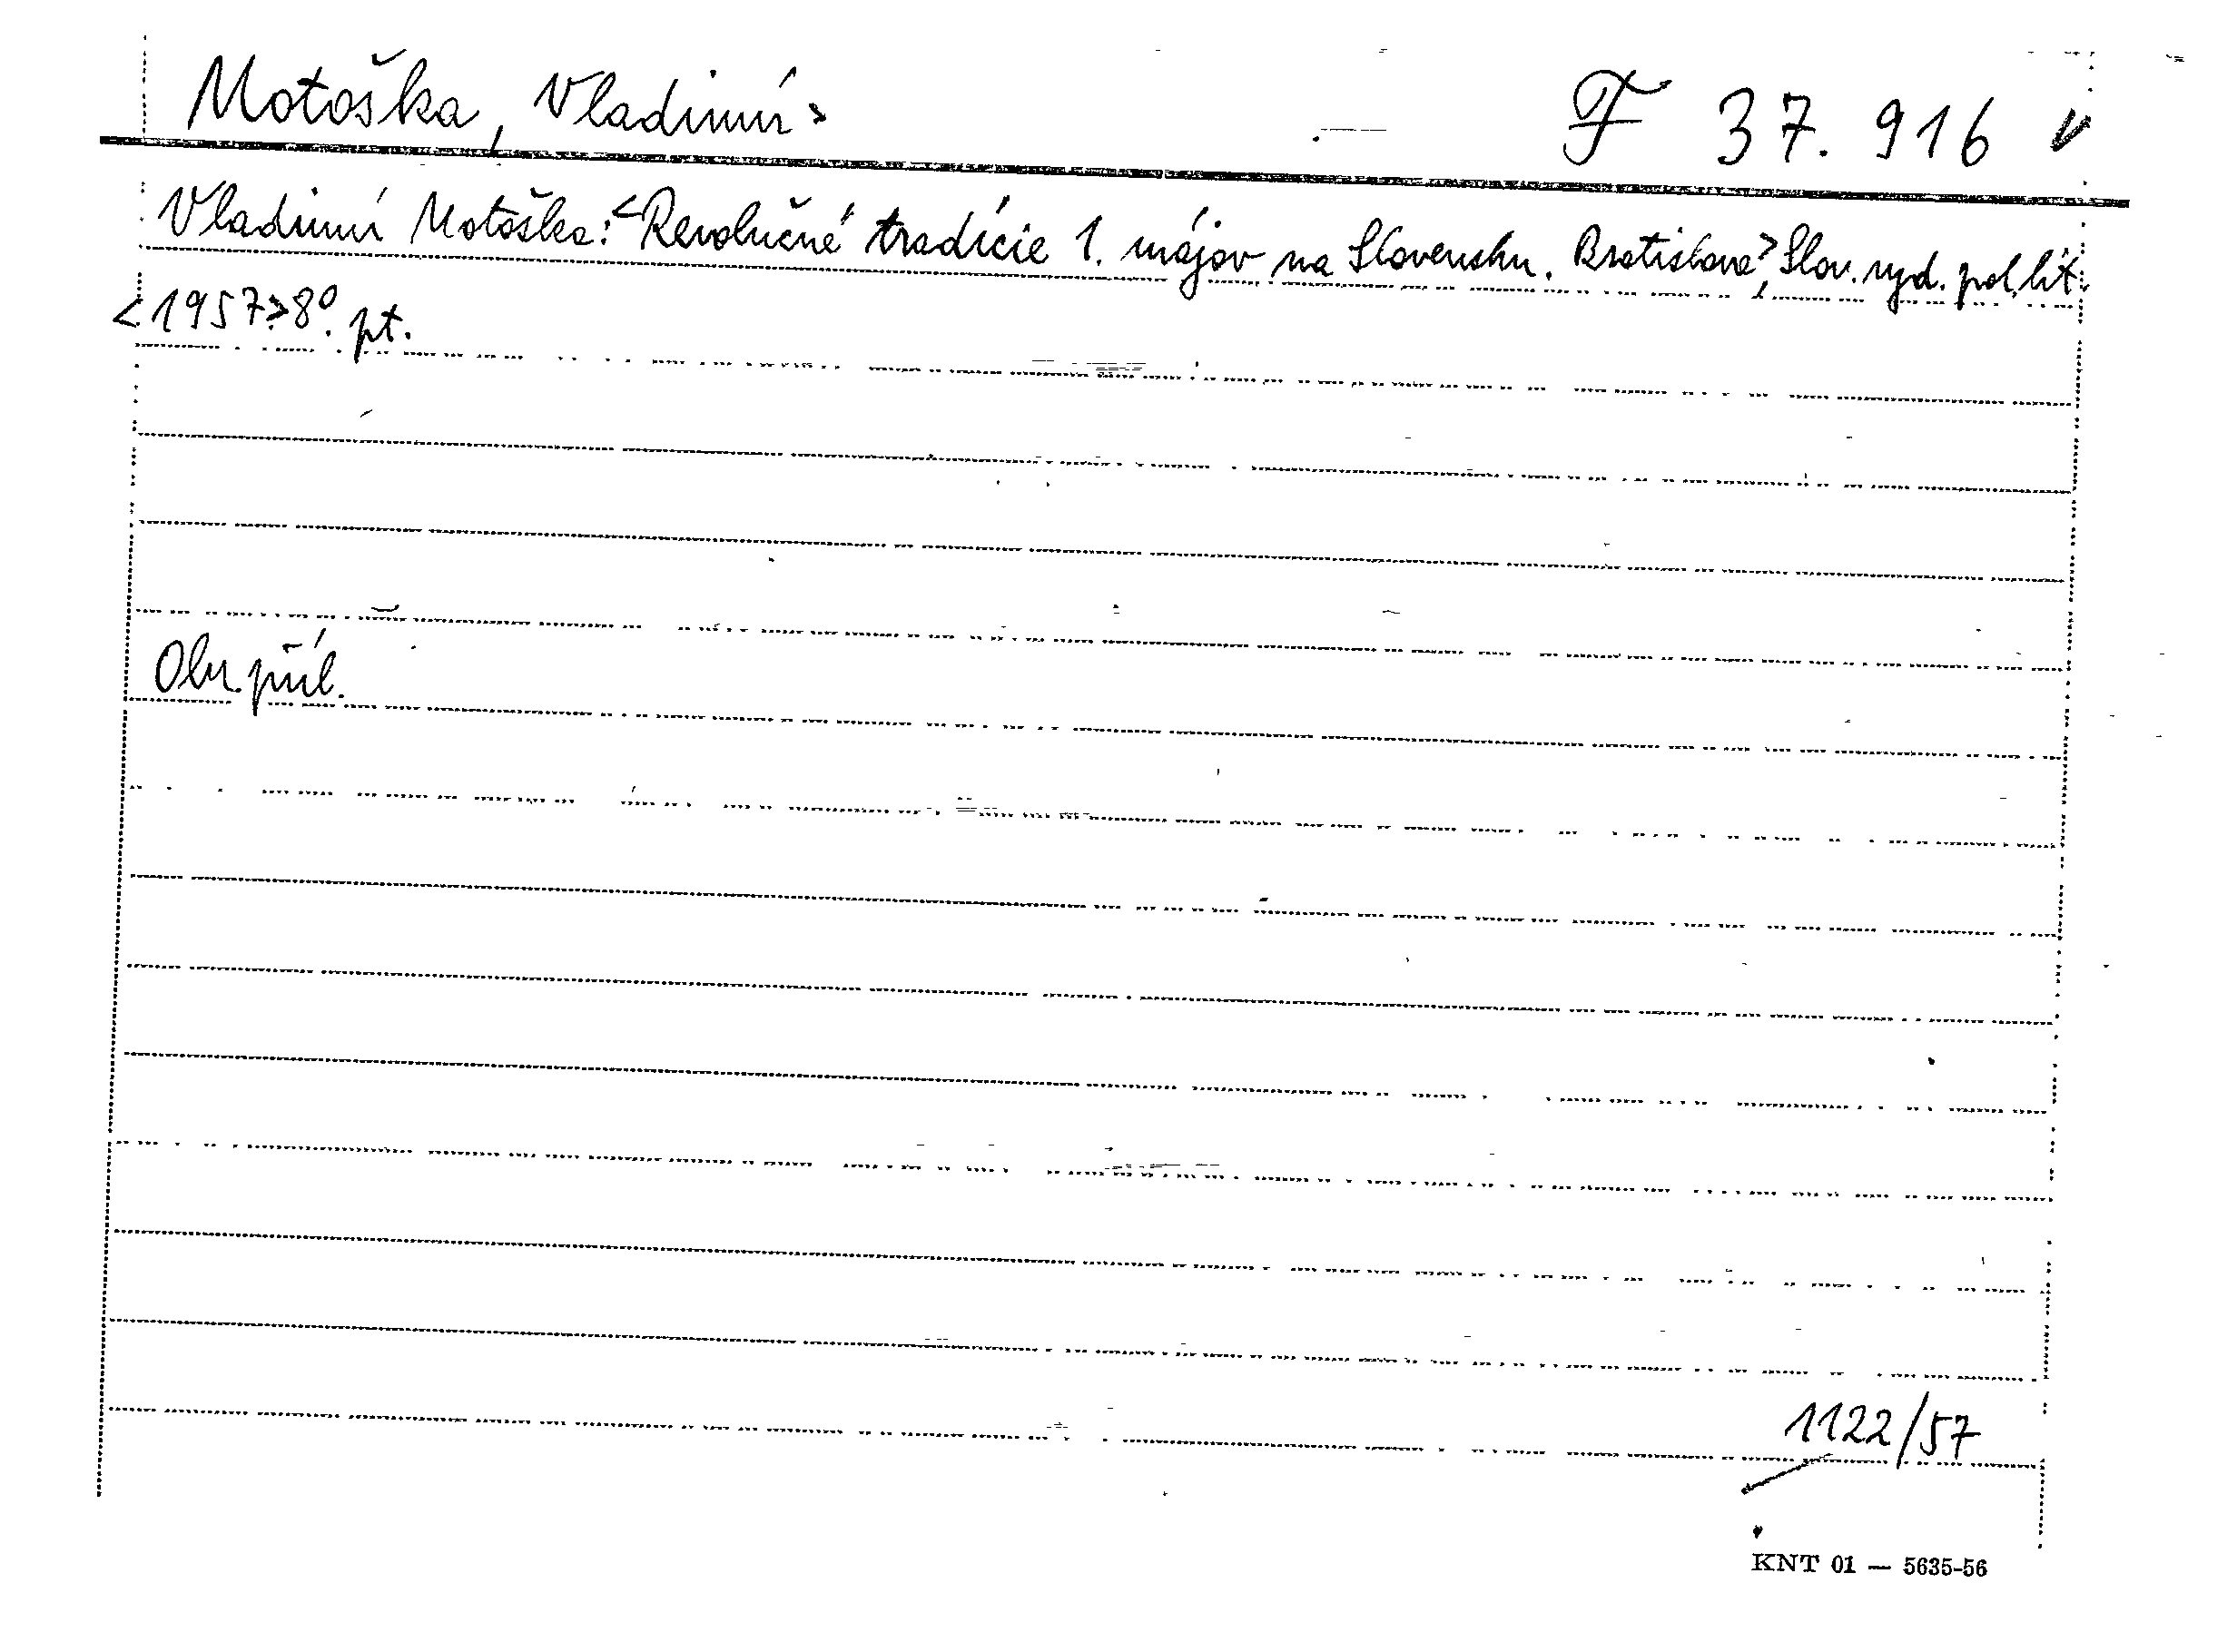 Motoška, Vladimír> F 37.916 v
Vladimír Motoška: <Revolučné tradície 1. májov na Slovensku. Bratislava>, Slov. vyd. pol. lit.
<1957> 8°. pt.
Obr. příl.
1122/57
KNT 01 — 5635-56